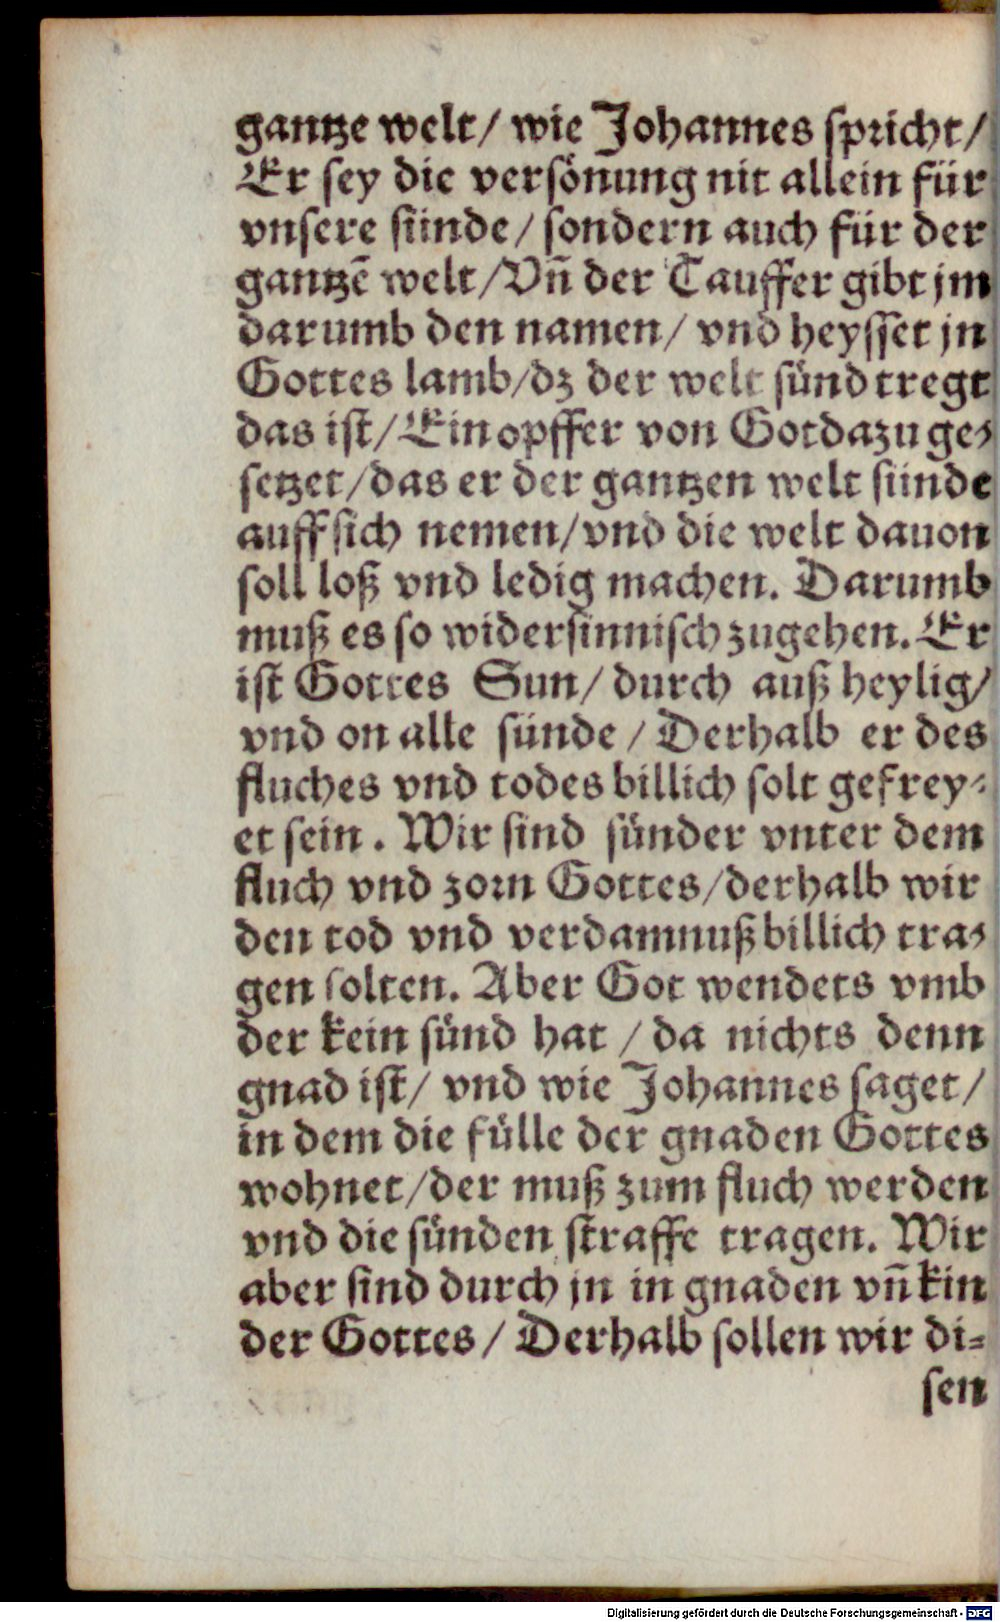 gantze welt/ wie Johannes spricht/
Er sey die versönung nit allein für
vnsere sünde/ sondern auch für der
gantzē welt/Vn̄ der Tauffer gibt jm
darumb den namen/ vnd heysset jn
Gottes lamb/dz der welt sünd tregt
das ist/Ein opffer von Got dazu ge-
setzet/das er der gantzen welt sünde
auff sich nemen/vnd die welt dauon
soll loß vnd ledig machen. Darumb
muß es so widersinnisch zugehen. Er
ist Gottes Sun/ durch auß heylig/
vnd on alle sünde / Derhalb er des
fluches vnd todes billich solt gefrey-
et sein. Wir sind sünder vnter dem
fluch vnd zorn Gottes/derhalb wir
den tod vnd verdamnuß billich tra-
gen solten. Aber Got wendets vmb
der kein sünd hat / da nichts denn
gnad ist/ vnd wie Johannes saget/
in dem die fülle der gnaden Gottes
wohnet/der muß zum fluch werden
vnd die sünden straffe tragen. Wir
aber sind durch jn in gnaden vn̄ kin
der Gottes/ Derhalb sollen wir di-
sen
Digitalisierung gefördert durch die Deutsche Forschungsgemeinschaft - DFG